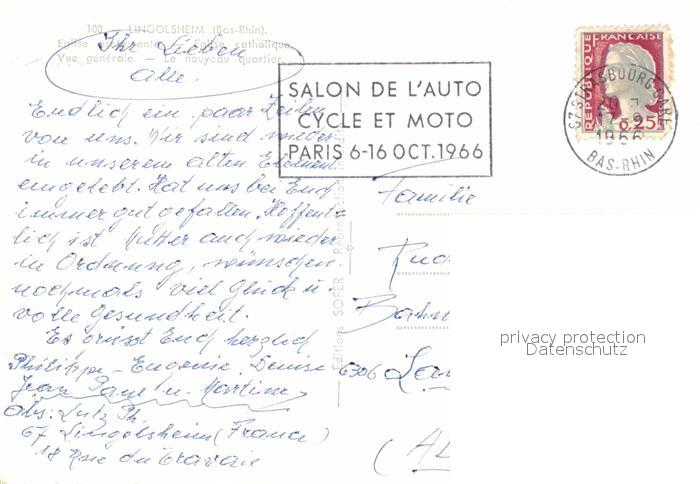 100. - LINGOLSHEIM (Bas-Rhin).
Eglise protestante - Eglise catholique
Vue générale. - Le nouveau quartier.
Ihr Lieben
alle.
Endlich ein paar Zeilen
von uns. Wir sind wieder
in unserem alten Element
eingelebt. Hat uns bei Euch
immer gut gefallen. Hoffent-
lich ist Mutter auch wieder
in Ordnung, wünschen
nochmals viel Glück u.
volle Gesundheit.
Es grüsst Euch herzlich
Philippe - Eugenie. Denise
Jean Paul u. Martine
Abs: Lutz Ph.
67 Lingolsheim (France)
18 Rue du Travail
Editions SOFER -
SALON DE L'AUTO
CYCLE ET MOTO
PARIS 6-16 OCT. 1966
REPUBLIQUE FRANÇAISE
0,25
67 STRASBOURG GARE
1966
BAS-RHIN
Familie
Bahn
6306
privacy protection
Datenschutz